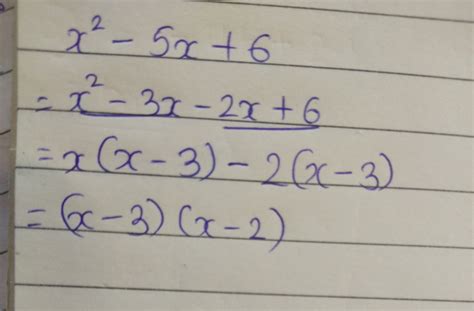 x² - 5x + 6
= x² - 3x - 2x + 6
= x(x - 3) - 2(x - 3)
= (x - 3)(x - 2)